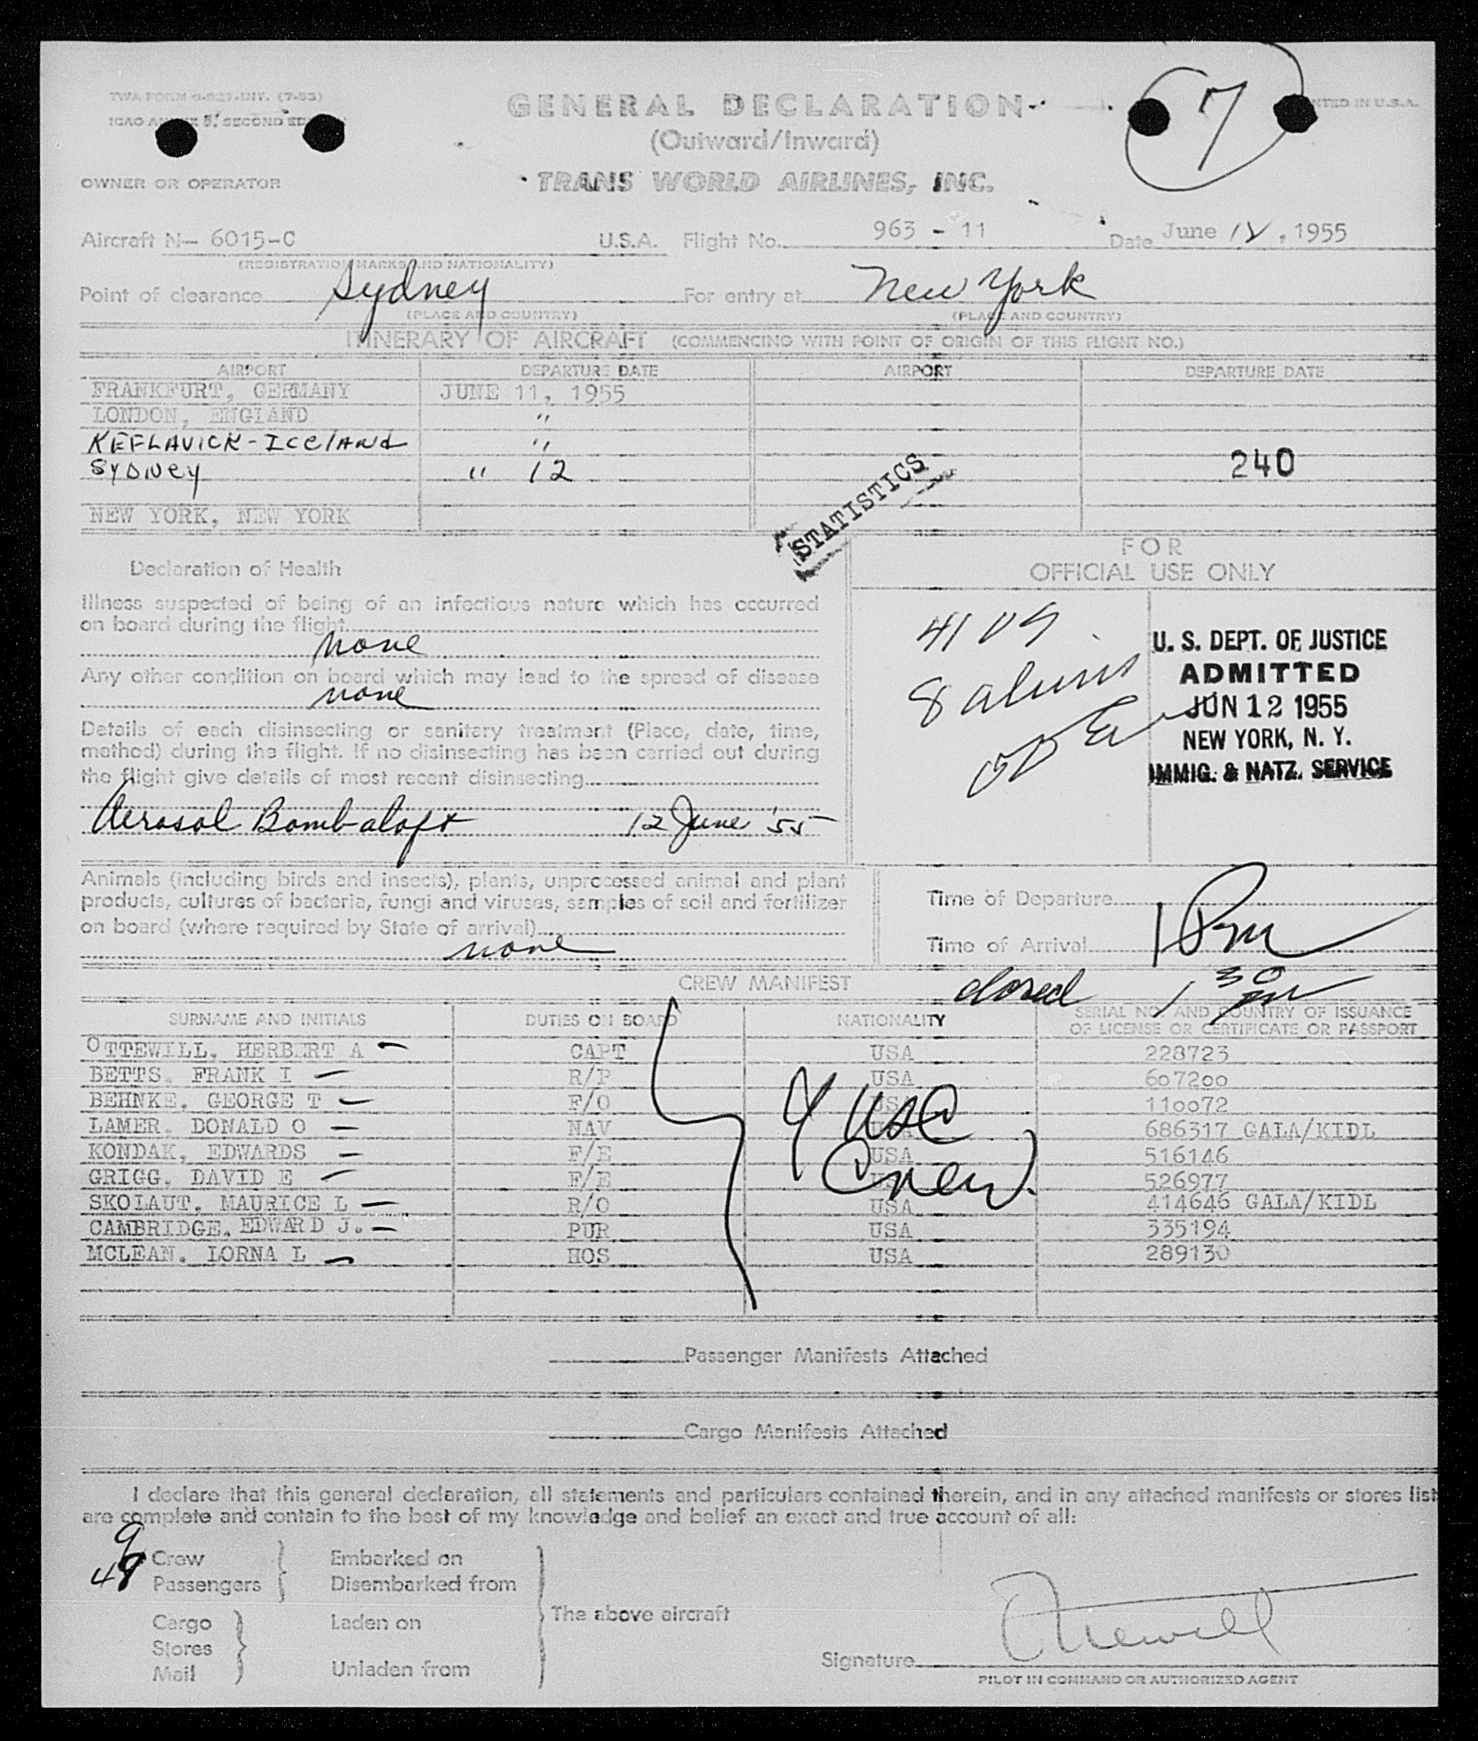 TWA FORM
GENERAL DECLARATION
7
NTED IN U.S.A.
(Outward/Inward)
OWNER OR OPERATOR
TRANS WORLD AIRLINES, INC.
Aircraft N- 6015-C U.S.A. Flight No. 963 - 11 Date June 12, 1955
(REGISTRATION MARKS AND NATIONALITY)
Point of clearance Sydney For entry at New York
(PLACE AND COUNTRY) (PLACE AND COUNTRY)
ITINERARY OF AIRCRAFT (COMMENCING WITH POINT OF ORIGIN OF THIS FLIGHT NO.)
AIRPORT DEPARTURE DATE AIRPORT DEPARTURE DATE
FRANKFURT, GERMANY JUNE 11, 1955
LONDON, ENGLAND "
KEFLAVICK-ICELAND "
SYDNEY " 12
240
NEW YORK, NEW YORK
STATISTICS
FOR
OFFICIAL USE ONLY
Declaration of Health
Illness suspected of being of an infectious nature which has occurred
on board during the flight
none
Any other condition on board which may lead to the spread of disease
none
Details of each disinsecting or sanitary treatment (Place, date, time,
method) during the flight. If no disinsecting has been carried out during
the flight give details of most recent disinsecting
Aerosol Bomb aloft 12 June '55
41 US
8 aliens
U. S. DEPT. OF JUSTICE
ADMITTED
JUN 12 1955
NEW YORK, N. Y.
IMMIG. & NATZ. SERVICE
Animals (including birds and insects), plants, unprocessed animal and plant
products, cultures of bacteria, fungi and viruses, samples of soil and fertilizer
on board (where required by State of arrival)
none
Time of Departure
Time of Arrival 1 Pm
closed 1 30 pm
CREW MANIFEST
SURNAME AND INITIALS DUTIES ON BOARD NATIONALITY SERIAL NO. AND COUNTRY OF ISSUANCE
OF LICENSE OR CERTIFICATE OR PASSPORT
OTTEWILL, HERBERT A CAPT USA 228723
BETTS, FRANK I R/P USA 607200
BEHNKE, GEORGE T F/O USA 110072
LAMER, DONALD O NAV USA 686317 GALA/KIDL
KONDAK, EDWARDS F/E USA 516146
GRIGG, DAVID E F/E USA 526977
SKOLAUT, MAURICE L R/O USA 414646 GALA/KIDL
CAMBRIDGE, EDWARD J. PUR USA 335194
MCLEAN, LORNA L HOS USA 289130
9 USC
Crew
Passenger Manifests Attached
Cargo Manifests Attached
I declare that this general declaration, all statements and particulars contained therein, and in any attached manifests or stores list
are complete and contain to the best of my knowledge and belief an exact and true account of all:
9 Crew Embarked on
49 Passengers Disembarked from
The above aircraft
Cargo Laden on
Stores
Mail Unladen from
Signature Ottewill
PILOT IN COMMAND OR AUTHORIZED AGENT